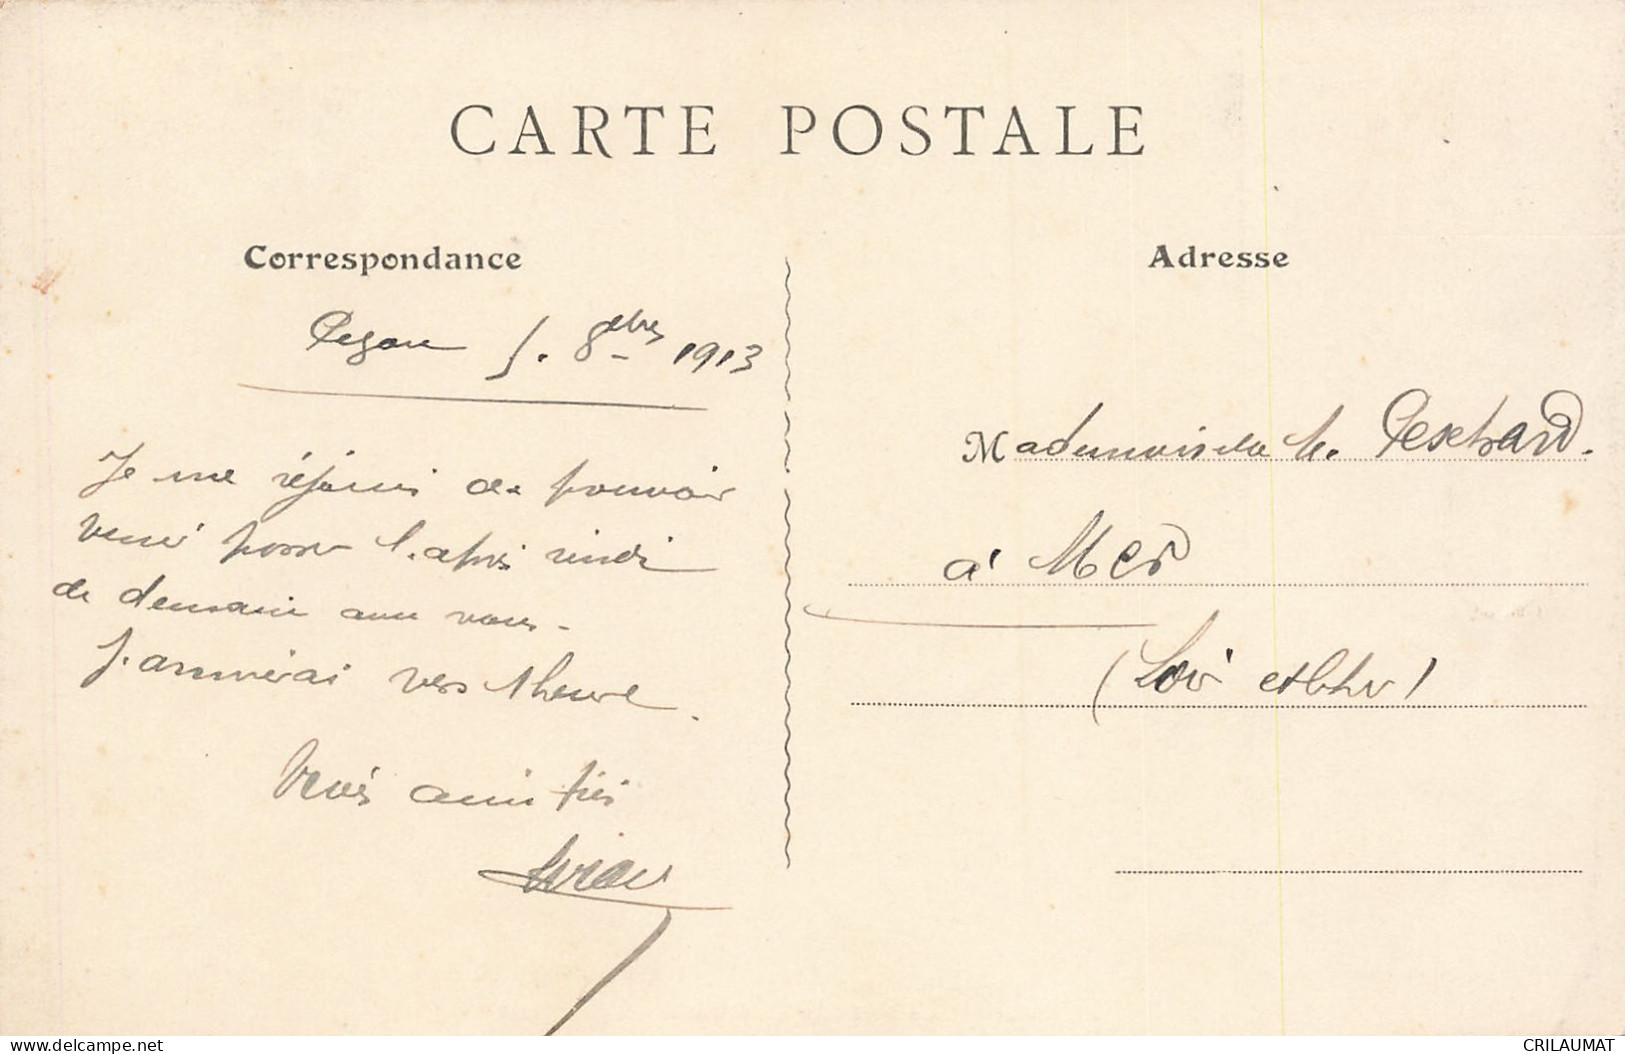 CARTE POSTALE
Correspondance
Adresse
5. 8bre 1913
Je me réjouis de pouvoir
venir passer l'après midi
de demain avec vous -
J'arriverai vers 1 heure.
Vives amitiés
Mademoiselle M.
à Mer
(Loir et Cher)
delcampe.net
CRILAUMAT